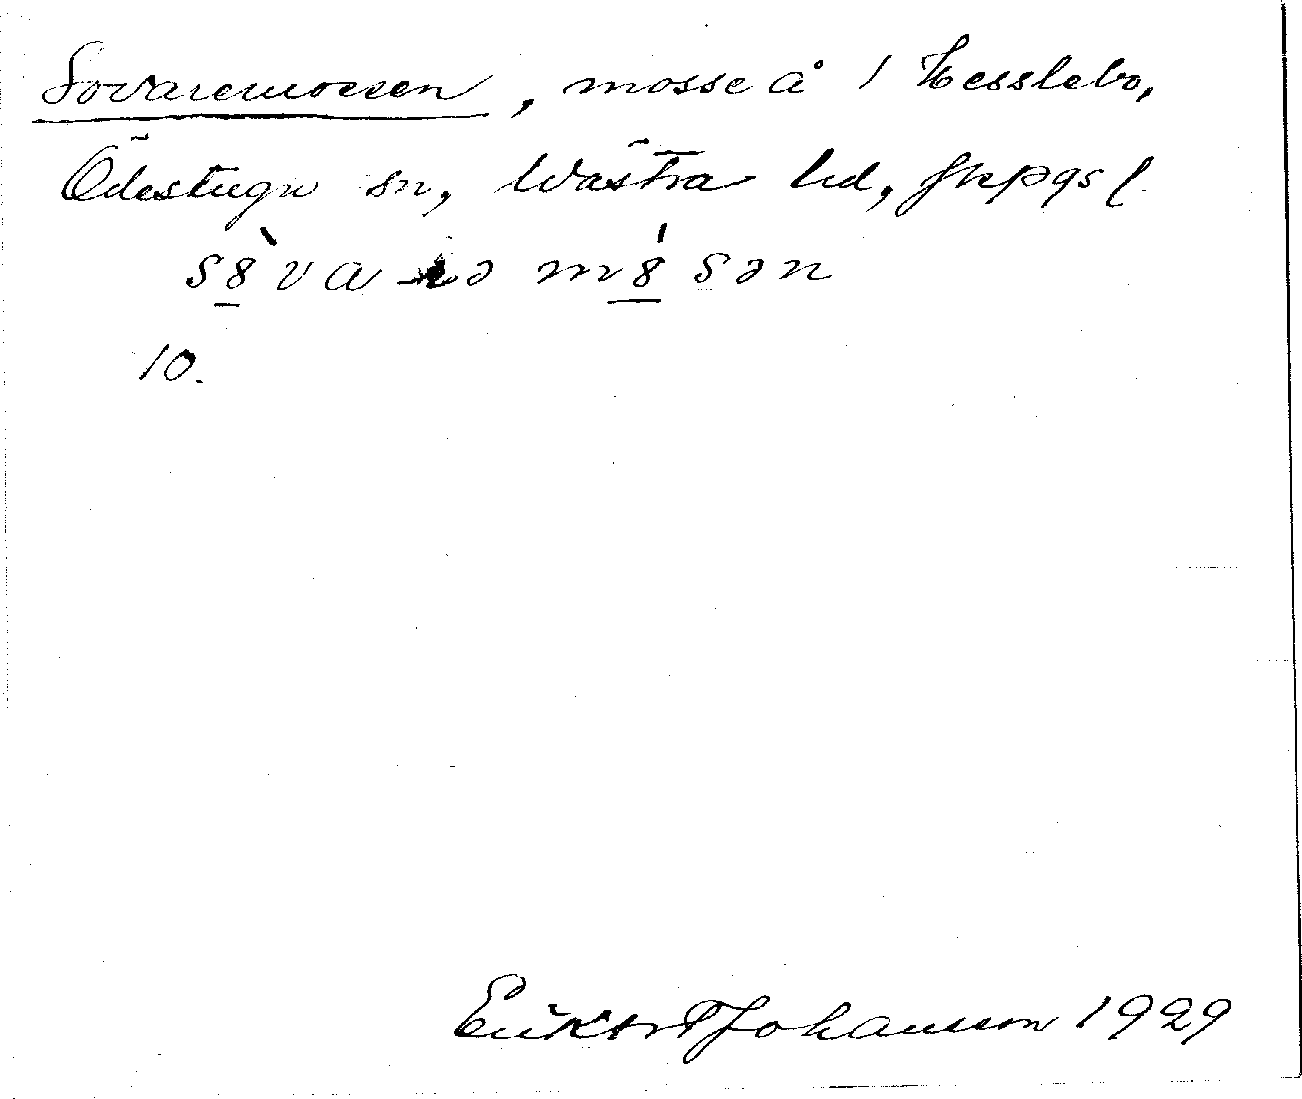 Sovaremossen, mosse å 1 Hesslebo,
Ödestugu sn, Västra hd, Jkpgs l
s8̲̀va rə m8̲́sən
10.
Johansson 1929